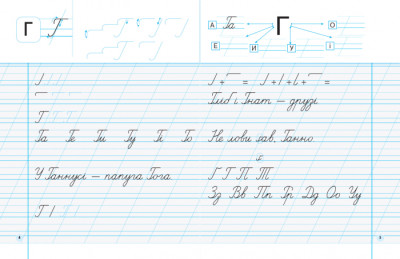 Г Г
А Га Г О
Е И У і
Га Ге Ги Гу Гі Го
У Ганнусі — папуга Гога.
Г
+ = + + + =
Гліб і Гнат — друзі.
Не лови ґав, Ганно
Г Г П Т
Зз Вв Пп Гг Дд Оо Уу